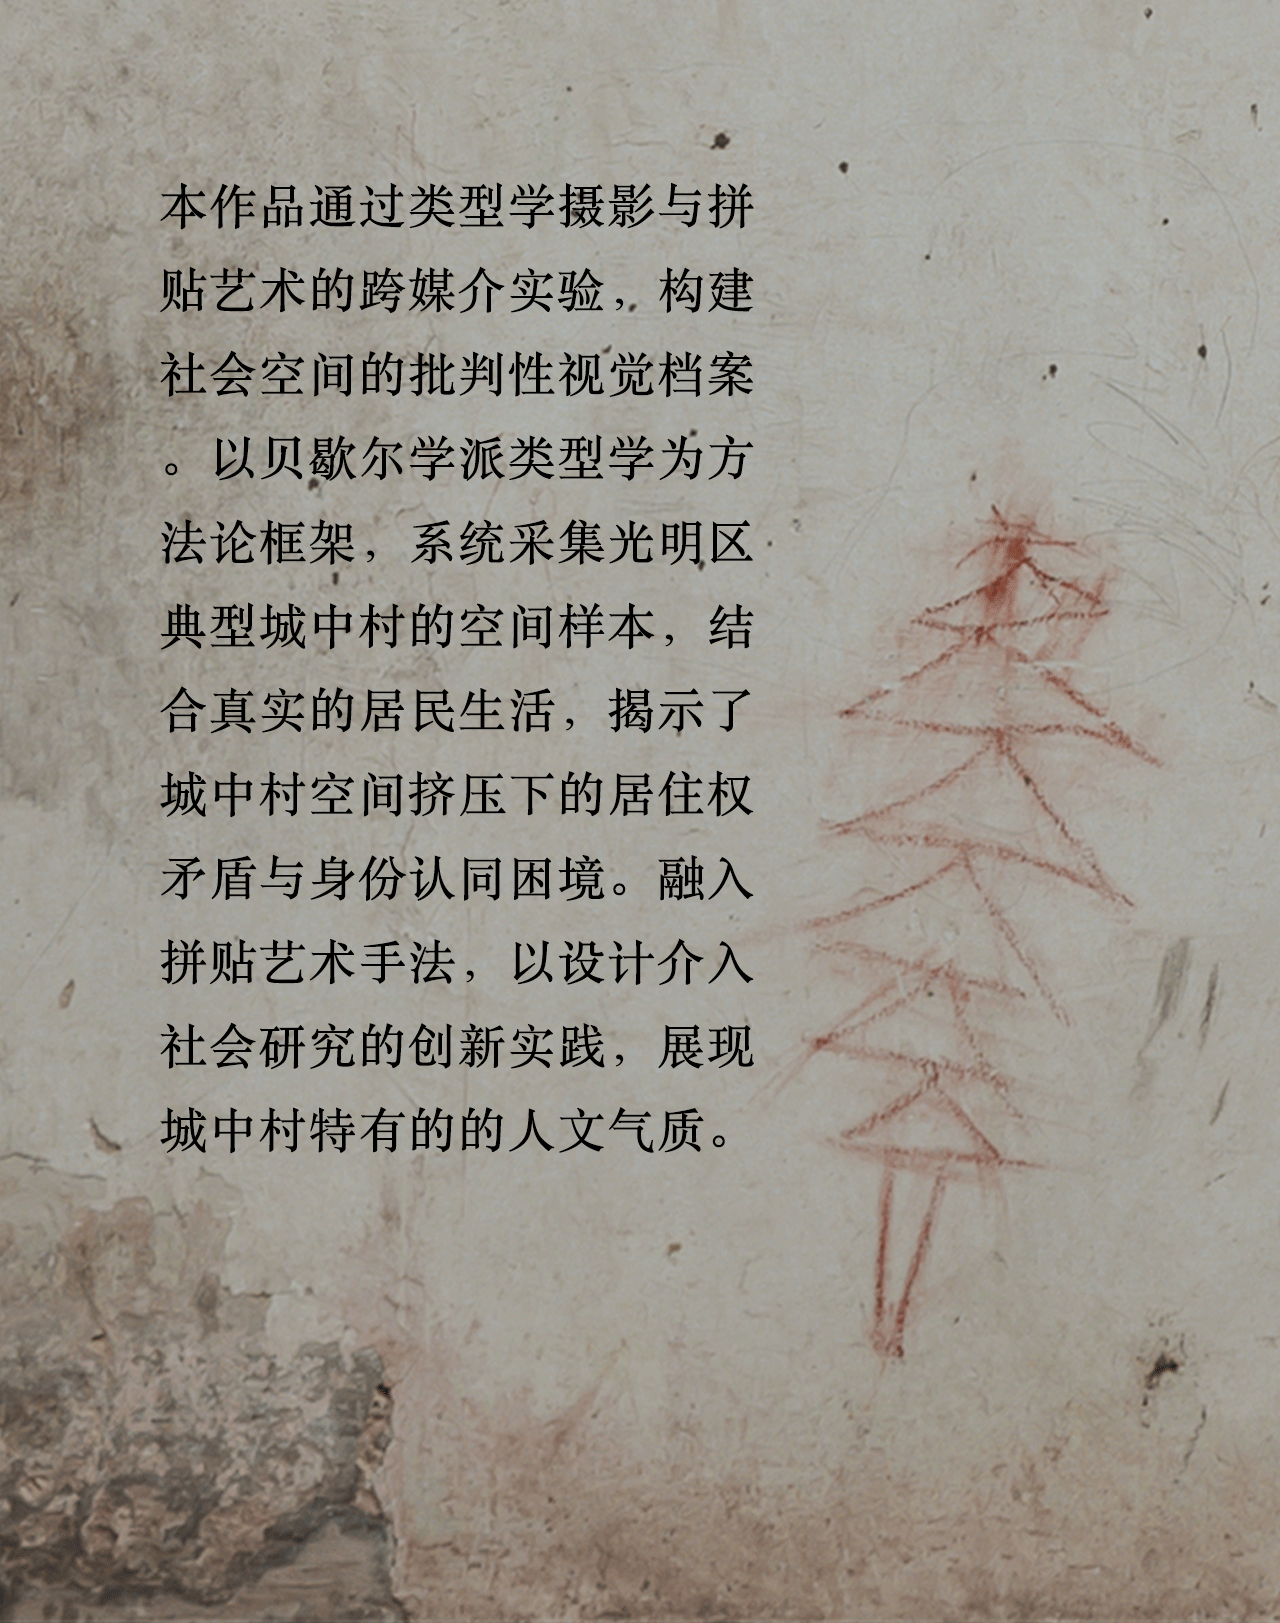 本作品通过类型学摄影与拼
贴艺术的跨媒介实验，构建
社会空间的批判性视觉档案
。以贝歇尔学派类型学为方
法论框架，系统采集光明区
典型城中村的空间样本，结
合真实的居民生活，揭示了
城中村空间挤压下的居住权
矛盾与身份认同困境。融入
拼贴艺术手法，以设计介入
社会研究的创新实践，展现
城中村特有的的人文气质。